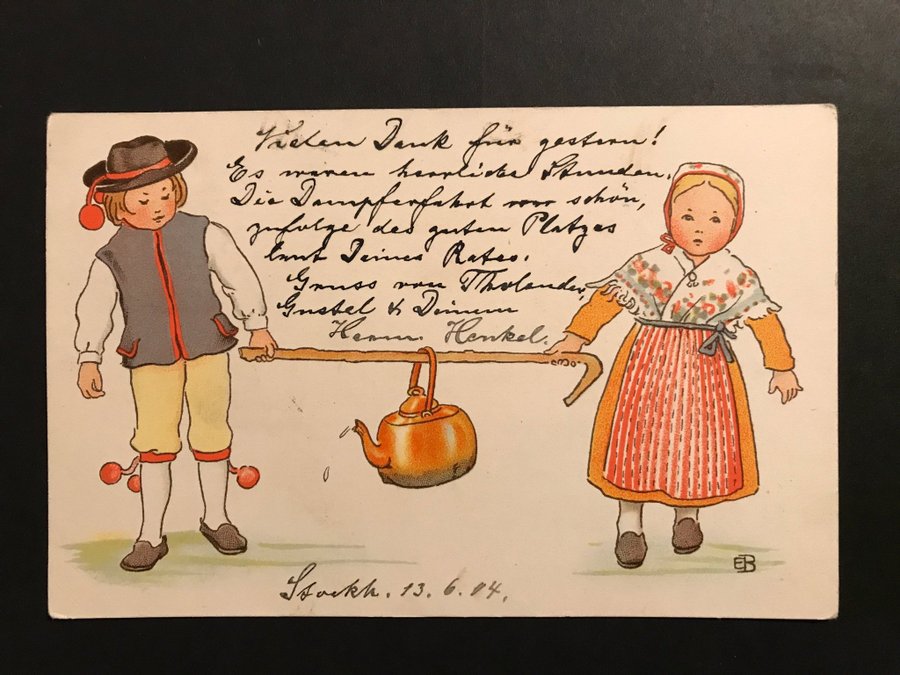 Vielen Dank für gestern!
Es waren herrliche Stunden.
Die Dampferfahrt war schön,
zufolge des guten Platzes
laut Deines Rates.
Gruss von Tholander,
Gustel & Deinem
Herm. Henkel.
Stockh. 13. 6. 04.
EB